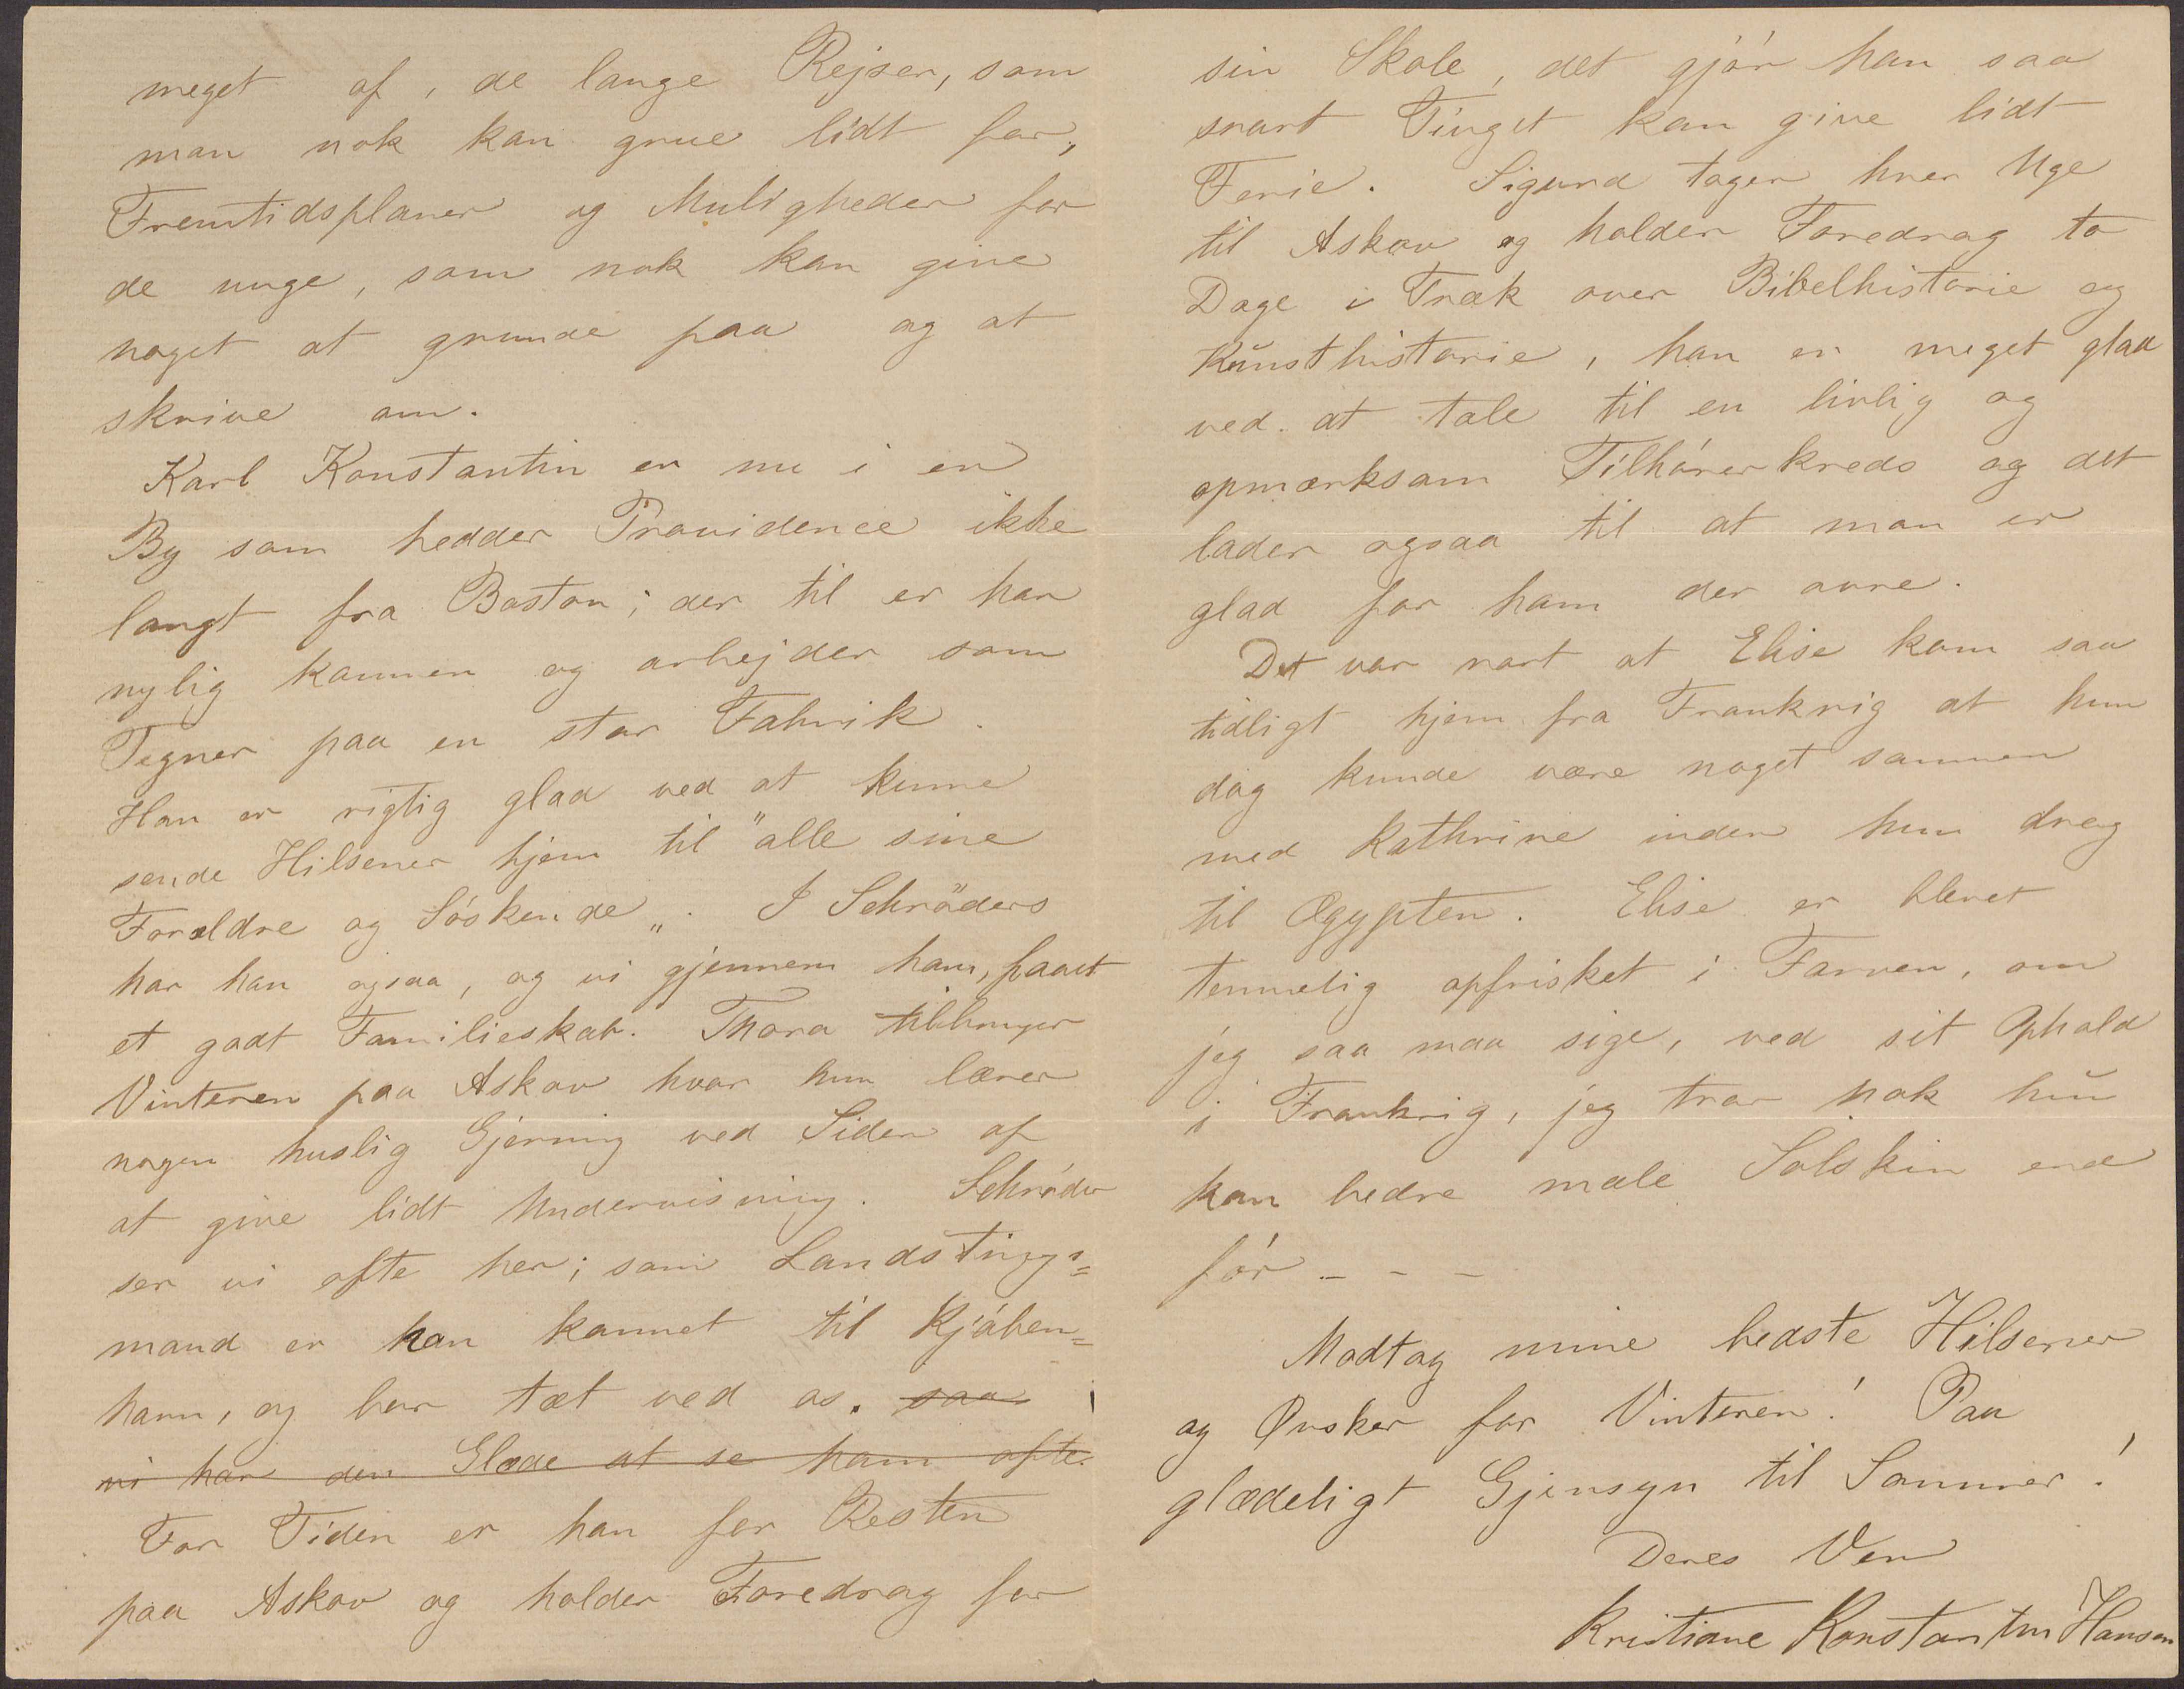 meget af, de lange Rejser, som
man nok kan grue lidt for,
Fremtidsplaner og Muligheder for
de unge, som nok kan give
noget at grunde paa og at
skrive om.
Karl Konstantin er nu i en
By som hedder Providence ikke
langt fra Boston; der til er han
nylig kommen og arbejder som
Tegner paa en stor Fabrik.
Han er rigtig glad ved at kunne
sende Hilsener hjem til "alle sine
Forældre og Söskende„. I Schröders
har han ogsaa, og vi gjennem ham, faaet
et godt Familieskab. Thora tilbringer
Vinteren paa Askov hvor hun lærer
nogen huslig Gjerning ved Siden af
at give lidt Undervisning. Schröder
ser vi ofte her; som Landstings=
mand er han kommet til Kjöben=
havn, og bor tæt ved os. saa
vi har den Glæde at se ham ofte.
For Tiden er han for Resten
paa Askov og holder Foredrag for
sin Skole, det gjör han saa
snart Tinget kan give lidt
Ferie. Sigurd tager hver Uge
til Askov og holder Foredrag to
Dage i Træk over Bibelhistorie og
Kunsthistorie, han er meget glad
ved at tale til en livlig og
opmærksom Tilhörerkreds og det
lader ogsaa til at man er
glad for ham der ovre.
Det var rart at Elise kom saa
tidligt hjem fra Frankrig at hun
dog kunde være noget sammen
med Kathrine inden hun drog
til Ægypten. Elise er blevet
temmelig opfrisket i Farven, om
jeg saa maa sige, ved sit Ophold
i Frankrig, jeg tror nok hun
kan bedre male Solskin end
för - - -
Modtag mine bedste Hilsener
og Ønsker for Vinteren! Paa
glædeligt Gjensyn til Sommer!
Deres Ven
Kristiane Konstantin Hansen